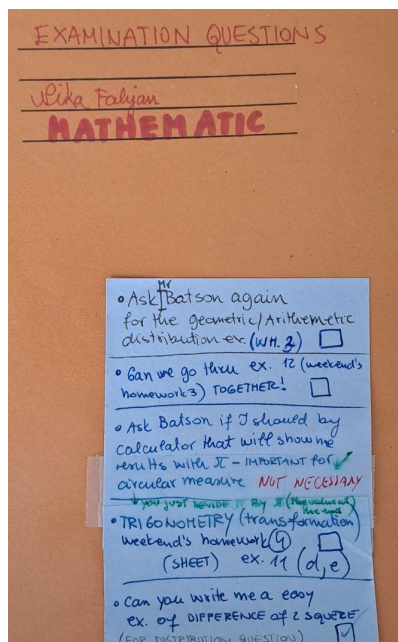 EXAMINATION QUESTIONS
Nika Faljan
MATHEMATIC
• Ask Mr Batson again
for the geometric/Arithemetic
distribution ex. (WH. 3)
• Can we go thru ex. 12 (weekend's
homework 3) TOGETHER!
• Ask Batson if I should by
calculator that will show me
results with π - IMPORTANT for
circular measure NOT NECESSARY
↓ YOU JUST DEVIDE IT BY π (the value at
the end)
• TRIGONOMETRY (transformation)
weekend's homework 4
(SHEET) ex. 11 (d,e)
• Can you write me a easy
ex. of DIFFERENCE of 2 SQUERE
(FOR DISTRIBUTION QUESTION)